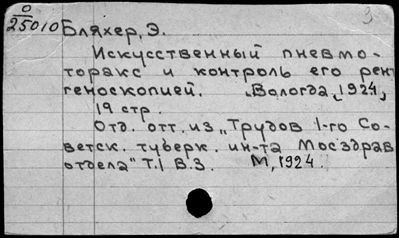 О
25010 Бляхер, Э.
Искусственный пневмо-
торакс и контроль его рент
геноскопией. Вологда, 1924,
19 стр.
Отд. отт. из „Трудов 1-го Со-
ветск. туберк. ин-та Мосздрав
отдела" Т.1 В.3. М, 1924.